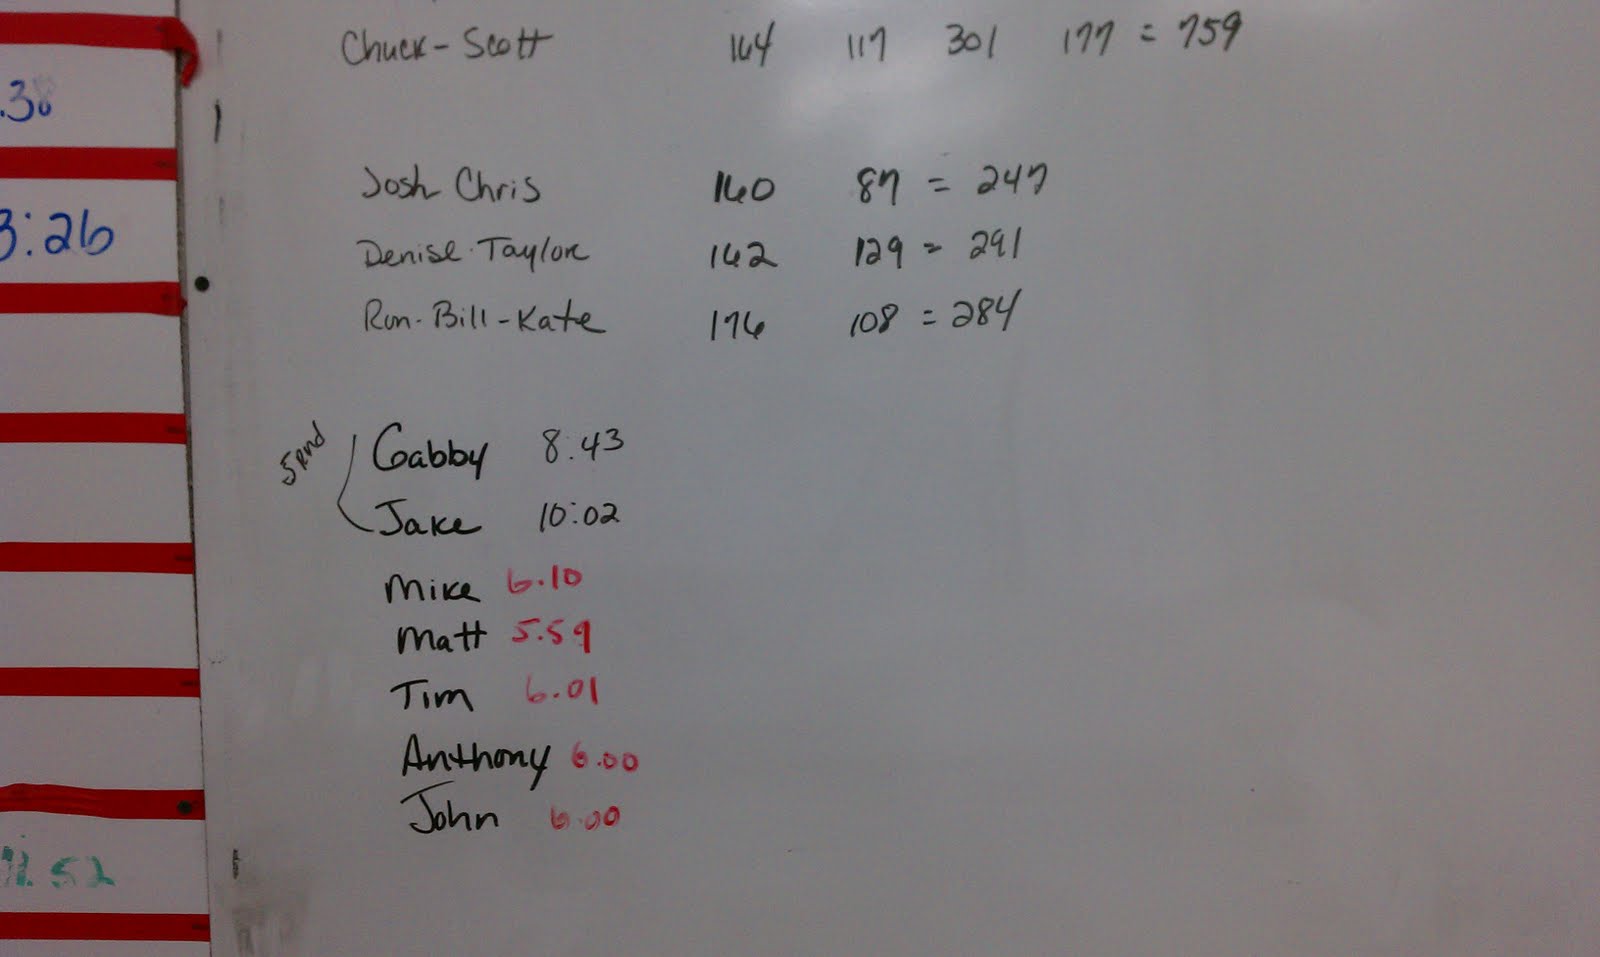 Chuck - Scott 164 117 301 177 = 759
.38
3:26
Josh Chris 160 87 = 247
Denise · Taylor 162 129 = 291
Ron - Bill - Kate 176 108 = 284
5 Rnd
Gabby 8:43
Jake 10:02
Mike 6.10
Matt 5.59
Tim 6.01
Anthony 6.00
John 6.00
11.52